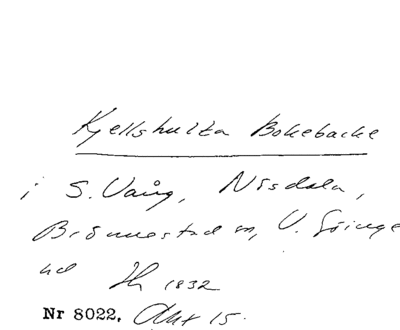 Kjellshulta Bokebacke
i S. Vång, Nisdala,
Brönnestad sn, V. Göinge
hd Th 1832
Nr 8022. Akt 15.